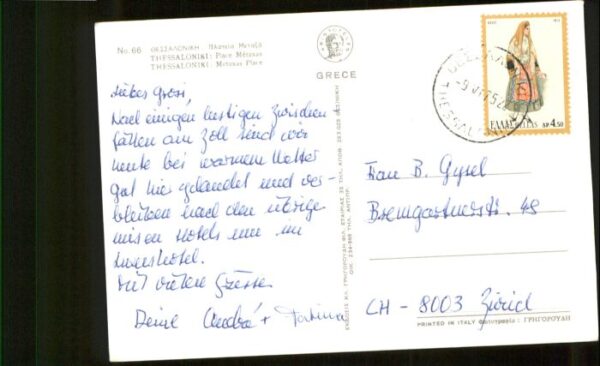 No. 66 ΘΕΣΣΑΛΟΝΙΚΗ: Πλατεία Μεταξά
THESSALONIKI: Place Métaxas
THESSALONIKI: Metaxas Place
GRECE
Liebes Grosi,
Nach einigen lustigen Zwischen-
fällen am Zoll sind wir
heute bei warmem Wetter
gut hier gelandet und ver-
bleiben nach den übrige
miesen Hotels nun im
Luxushotel.
Mit vielen Grüssen
Deine André + 
ΕΛΛΑΣ HELLAS ΔΡ 4.50
THESSALONIKI
Frau B. Gysel
Bremgartnerstr. 48
CH - 8003 Zürich
PRINTED IN ITALY Φωτογραφία: ΓΡΗΓΟΡΟΥΔΗ